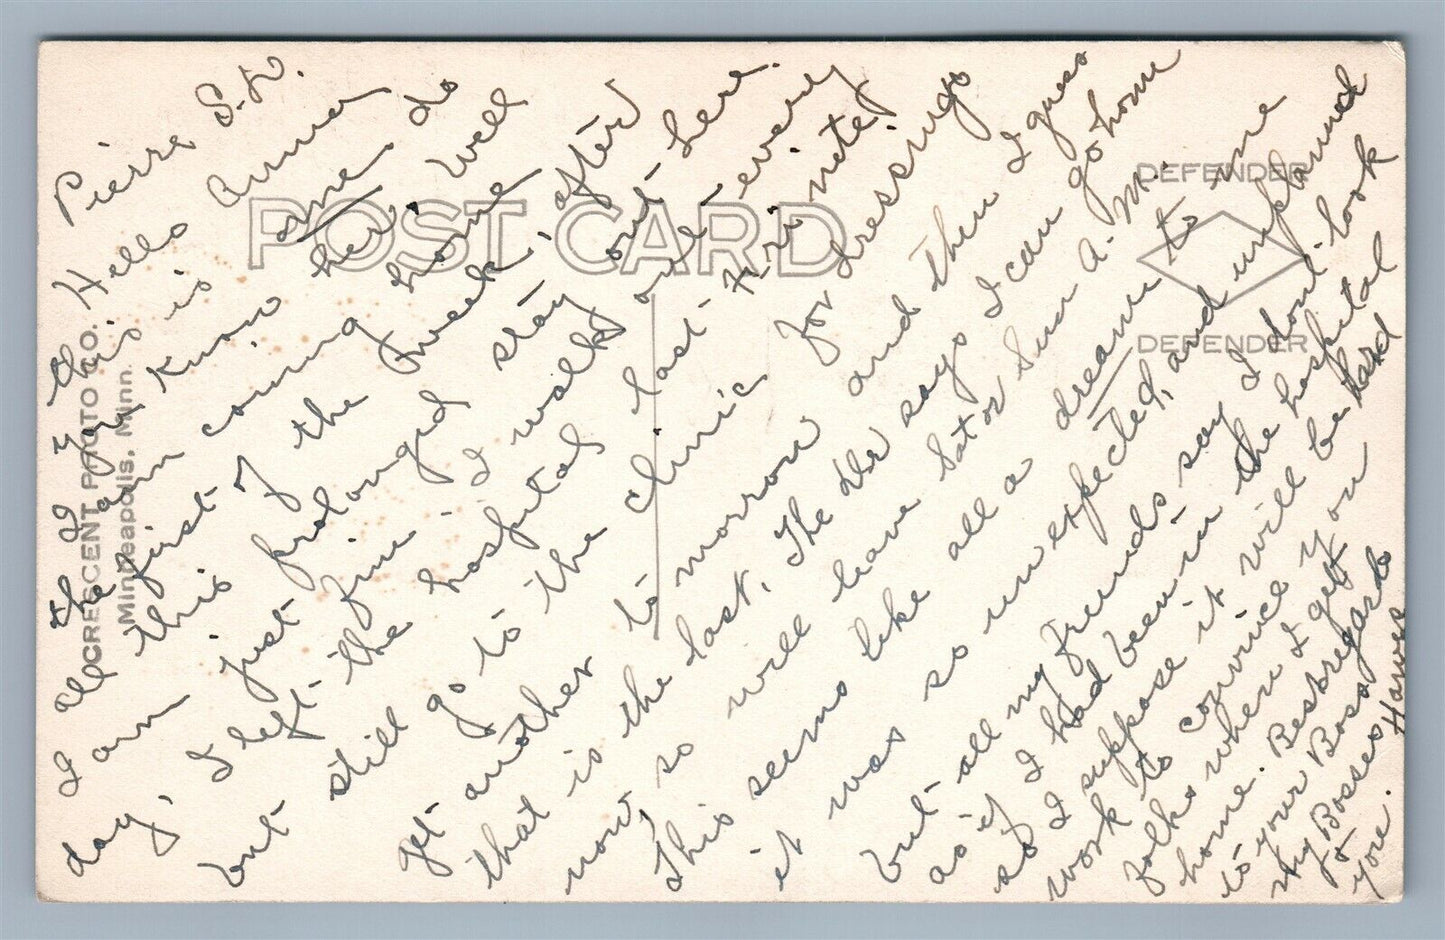 Pierre S.D.
Hello Anna
this is me, do
you know her. Well
I am coming home
the first of the week, after
all this prolonged stay out here.
I am just fine - I walk and every
day, I left the hospital last Fri nite,
but still go to the clinic for dressings
get another to morrow and then I guess
that is the last. The Dr says I can go home
now, so will leave Sat or Sun A.M.
This seems like all a dream to me
it was so unexpected, and unplanned
but all my friends say I don't look
as if I had been in the hospital
so I suppose it will be hard
work to convince you
folks when I get
home. Best regards
to your Boss &
my Bosses
& you.
POST CARD
DEFENDER
DEFENDER
CRESCENT PHOTO CO.
Minneapolis, Minn.